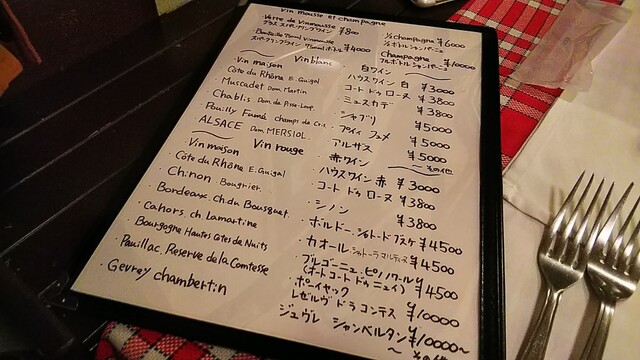 Vin mousse et champagne
Verre de Vin mousse ¥800
グラス スパークリングワイン
Bouteille 75ml Vin mousse
スパークリングワイン 75mlボトル ¥4000
½ champagne ¥6000
½ボトル シャンパーニュ
Champagne ¥10000
フルボトル シャンパーニュ
Vin blanc 白ワイン
Vin maison ハウスワイン 白 ¥3000
Côte du Rhône E. Guigal コート ドゥ ローヌ ¥3800
Muscadet Dom Martin ミュスカデ ¥3800
Chablis Dom. de シャブリ ¥5000
Pouilly Fumé champs de Cris プイイ フュメ ¥5000
ALSACE Dom MERSIOL アルザス ¥5000
〜その他
Vin rouge 赤ワイン
Vin maison ハウスワイン 赤 ¥3000
・Côte du Rhôna E. Guigal ・コート ドゥ ローヌ ¥3800
・Chinon Bougrier. ・シノン ¥3800
・Bordeaux. Ch. du Bousquet. ・ボルドー. シャトー ドゥ ブスケ ¥4500
・Cahors, ch Lamartine ・カオール. シャトー ラマルティーヌ ¥4500
・Bourgogne Hautes Côtes de Nuits ・ブルゴーニュ. ピノノワール ¥4500
(オートコート ドゥ ニュイ)
・Pauillac, Reserve de la Comtesse ・ポーイヤック
レゼルヴ ドラ コンテス ¥10000
・Gevrey chambertin ジュヴレ シャンベルタン ¥10000〜
〜その他